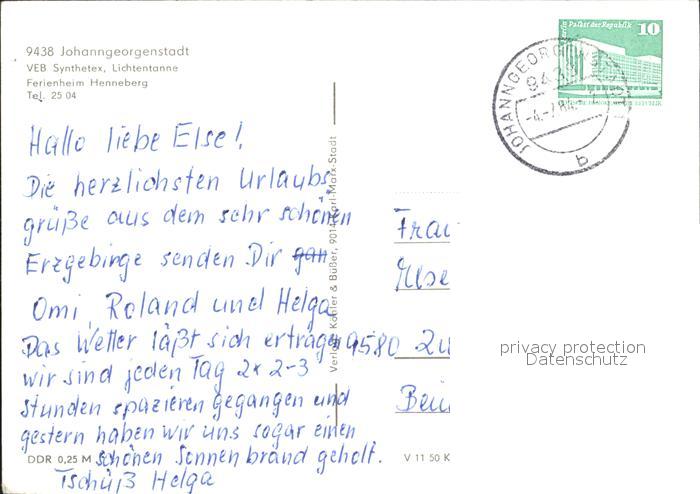 9438 Johanngeorgenstadt
VEB Synthetex, Lichtentanne
Ferienheim Henneberg
Tel. 25 04
Berlin Palast der Republik 10
JOHANNGEORG
943
b
Hallo liebe Else!
Die herzlichsten Urlaubs
grüße aus dem sehr schönen
Erzgebirge senden Dir gan
Omi, Roland und Helga
Das Wetter läßt sich ertragen
wir sind jeden Tag 2x 2-3
stunden spazieren gegangen und
gestern haben wir uns sogar einen
schönen Sonnenbrand geholt.
Tschüß Helga
DDR 0,25 M
Verlag Köhler & Büßer, 9014 Karl-Marx-Stadt
Frau
Else
9580 Zw
V 11 50 K
privacy protection
Datenschutz